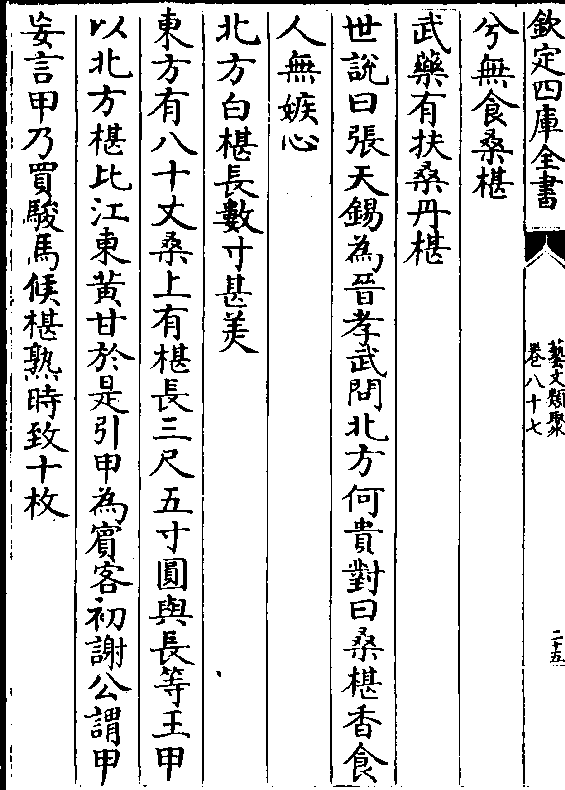 欽定四庫全書
藝文類聚
卷八十七
二十五
兮無食桑椹
武藥有扶桑丹椹
世說曰張天錫為晉孝武問北方何貴對曰桑椹香食
人無嫉心
北方白椹長數寸甚美
東方有八十丈桑上有椹長三尺五寸圓與長等王甲
以北方椹比江東黃甘於是引甲為賓客初謝公謂甲
妄言甲乃買駿馬候椹熟時致十枚